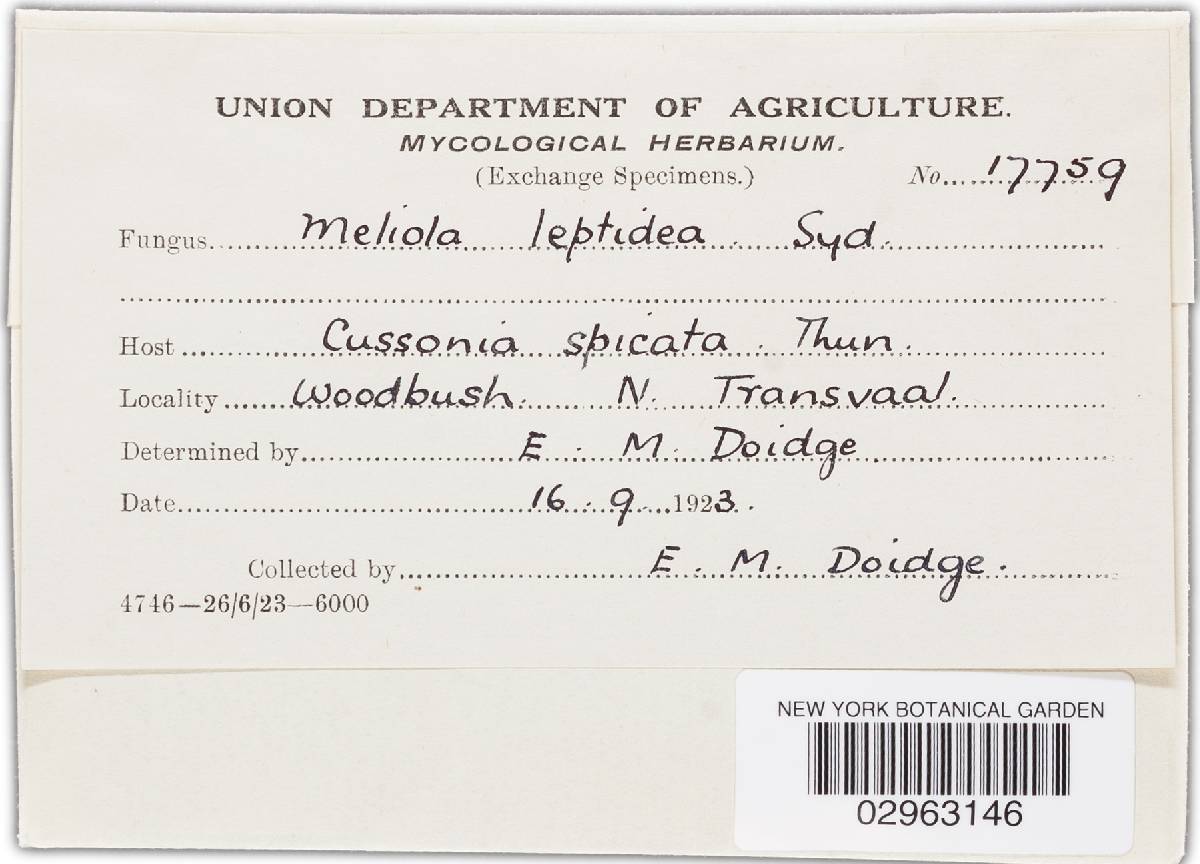 UNION DEPARTMENT OF AGRICULTURE.
MYCOLOGICAL HERBARIUM.
(Exchange Specimens.) No. 17759
Fungus Meliola leptidea Syd.
Host Cussonia spicata. Thun.
Locality Woodbush. N. Transvaal.
Determined by E. M. Doidge
Date 16. 9. 1923.
Collected by E. M. Doidge.
4746—26/6/23—6000
NEW YORK BOTANICAL GARDEN
02963146